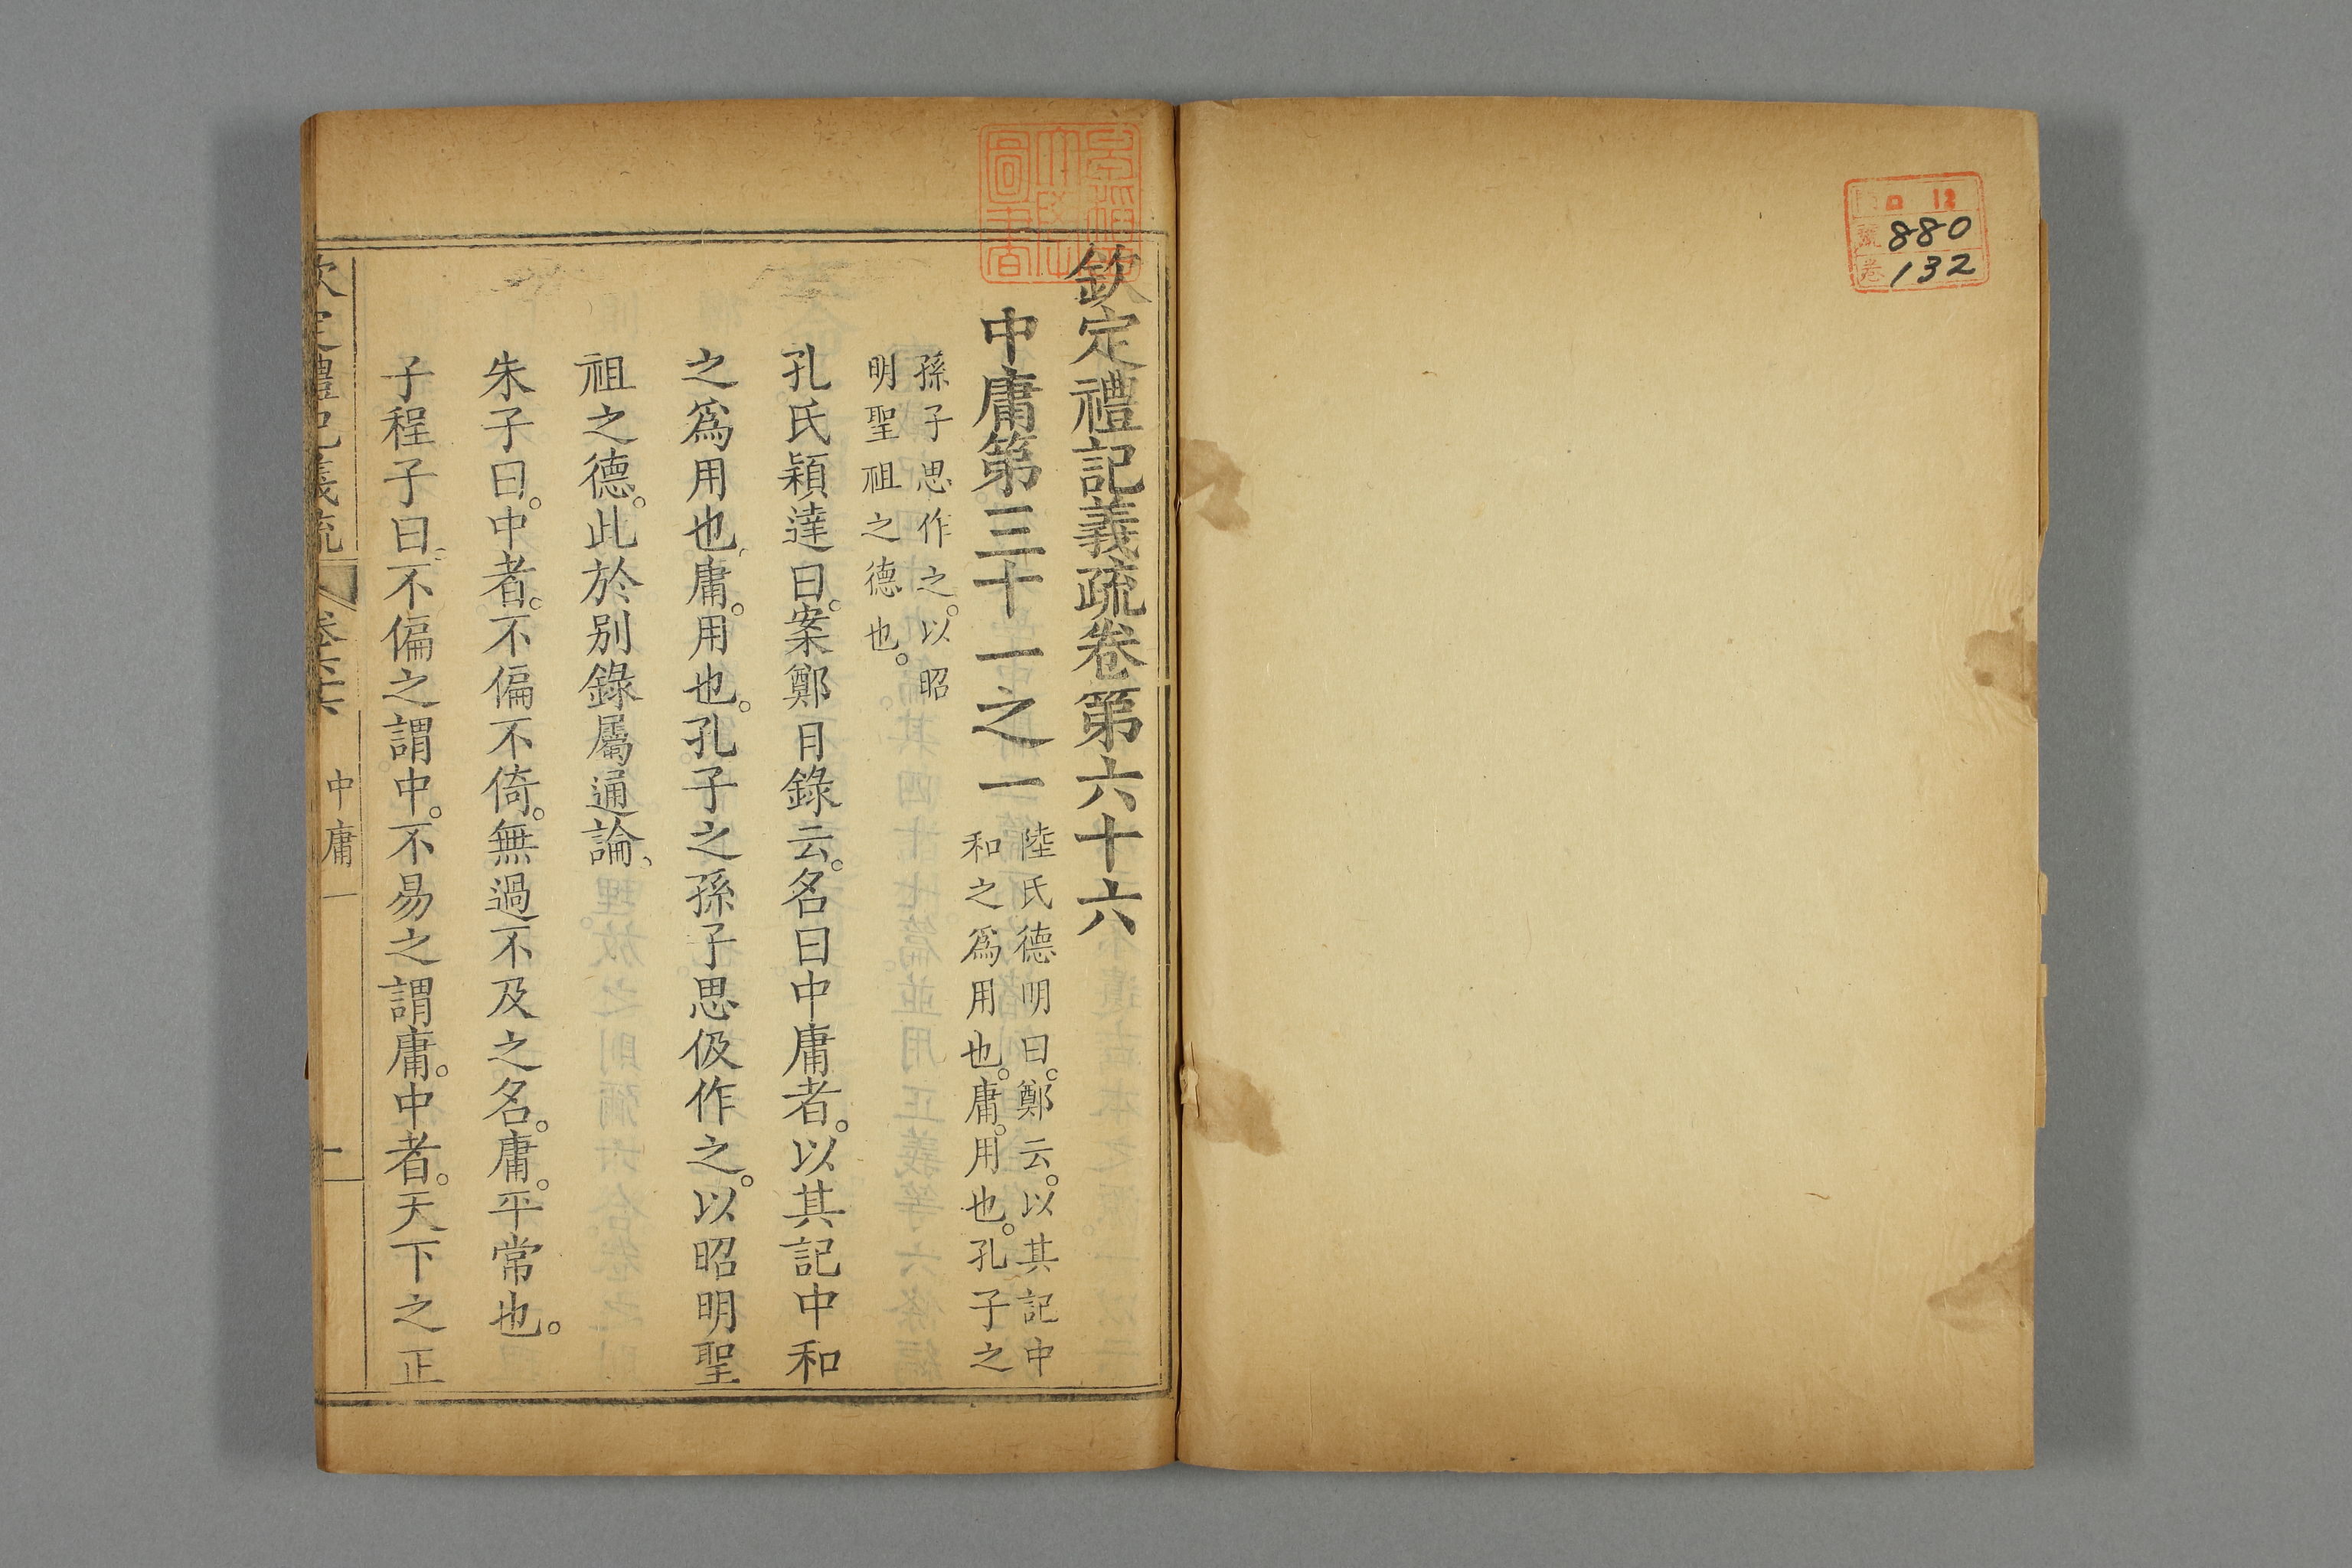 門 ロ 12
號 880
卷 132
早稲田大學圖書
欽定禮記義疏卷第六十六
中庸第三十一之一
陸氏德明曰。鄭云。以其記中
和之爲用也。庸。用也。孔子之
孫子思作之。以昭
明聖祖之德也。
孔氏穎達曰。案鄭目錄云。名曰中庸者。以其記中和
之爲用也、庸。用也。孔子之孫子思伋作之。以昭明聖
祖之德。此於別錄屬通論、
朱子曰。中者。不偏不倚。無過不及之名。庸。平常也。
子程子曰、不偏之謂中。不易之謂庸。中者。天下之正
欽定禮記義疏 卷六十六 中庸一 一